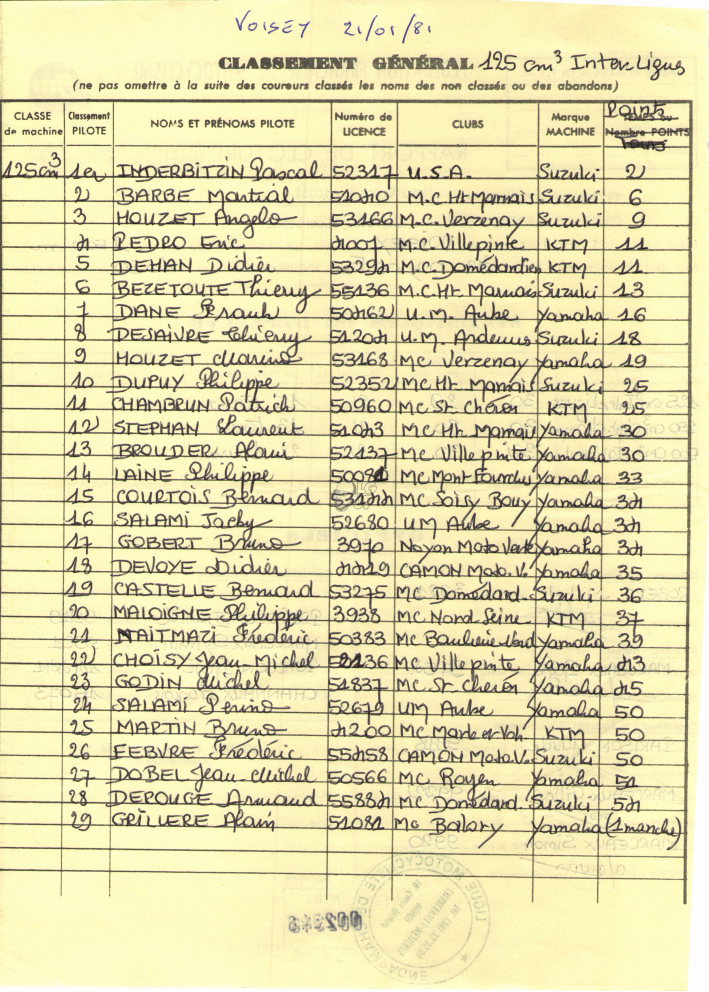 VOISEY 21/01/81
CLASSEMENT GÉNÉRAL 125 cm³ InterLigues
(ne pas omettre à la suite des coureurs classés les noms des non classés ou des abandons)
CLASSE de machine Classement PILOTE NOMS ET PRÉNOMS PILOTE Numéro de LICENCE CLUBS Marque MACHINE Points TEMPS ou Nombre POINTS
125cm³ 1er INDERBITZIN Pascal 52317 U.S.A. Suzuki 2
2 BARBE Martial 51040 M.C. Ht Marnais Suzuki 6
3 HOUZET Angelo 53166 M.C. Verzenay Suzuki 9
4 PEDRO Eric 4007 M.C. Villepinte KTM 11
5 DEHAN Didier 53294 M.C. Domédardien KTM 11
6 BEZETOUTE Thierry 55136 M.C. Ht. Marnais Suzuki 13
7 DANE Franck 50462 U.M. Aube Yamaha 16
8 DESAIVRE Thierry 51204 U.M. Ardennes Suzuki 18
9 HOUZET Marino 53168 MC Verzenay Yamaha 19
10 DUPUY Philippe 52352 MC Ht. Marnais Suzuki 25
11 CHAMBRUN Patrick 50960 MC St. Chéron KTM 25
12 STEPHAN Laurent 51043 MC Ht. Marnais Yamaha 30
13 BROUDER Alain 52137 MC Villepinte Yamaha 30
14 LAINE Philippe MC Mont Fourches Yamaha 33
15 COURTOIS Bernard 53144 MC Soisy Bouy Yamaha 34
16 SALAMI Jacky 52680 UM Aube Yamaha 34
17 GOBERT Bruno 3970 Noyon Moto Verte Yamaha 34
18 DEVOYE Didier 4419 CAMON Moto. V. Yamaha 35
19 CASTELLE Bernard 53275 MC Domédard. Suzuki 36
20 MALOIGNE Philippe 3938 MC Nord Seine KTM 37
21 NAITMAZI Frédéric 50383 MC Yamaha 39
22 CHOISY Jean-Michel MC Villepinte Yamaha 43
23 GODIN Michel 51837 MC St Chéron Yamaha 45
24 SALAMI Perino 52679 UM Aube Yamaha 50
25 MARTIN Bruno 4200 MC KTM 50
26 FEBVRE Frédéric 55458 CAMON Moto V. Suzuki 50
27 DOBEL Jean-Michel 50566 MC Royen Yamaha 51
28 DEPOUGE Armand 55834 MC Domédard. Suzuki 54
29 GRILLERE Alain 51081 MC Balory Yamaha (1 manche)